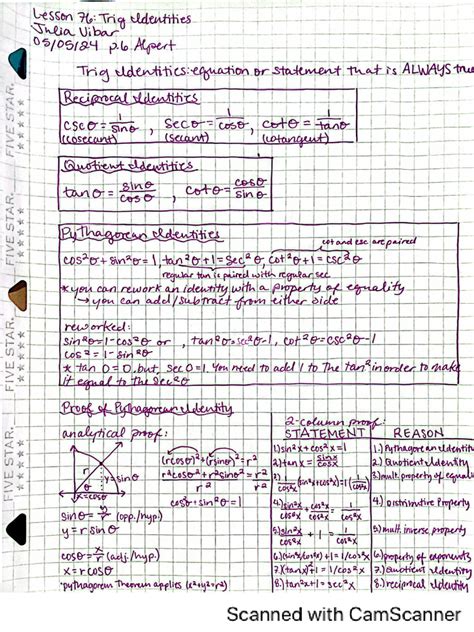 Lesson 76: Trig Identities
Julia Vibar
05/05/24 p.6 Alpert
Trig Identities: equation or statement that is ALWAYS true
Reciprocal Identities
cscθ = 1/sinθ , secθ = 1/cosθ, cotθ = 1/tanθ
(cosecant) (secant) (cotangent)
Quotient Identities
tanθ = sinθ/cosθ , cotθ = cosθ/sinθ
Pythagorean Identities
cot and csc are paired
cos²θ + sin²θ = 1, tan²θ + 1 = sec²θ, cot²θ + 1 = csc²θ
regular tan is paired with regular sec
* you can rework an identity with a property of equality
→ you can add/subtract from either side
reworked:
sin²θ = 1 - cos²θ or , tan²θ = sec²θ - 1, cot²θ = csc²θ - 1
cos² = 1 - sin²θ
* tan 0 = 0, but, sec 0 = 1. You need to add 1 to the tan² in order to make
it equal to the sec²θ
Proof of Pythagorean Identity
analytical proof:
r
y = sinθ
x = cosθ
(rcosθ)² + (rsinθ)² = r²
r²cos²θ + r²sin²θ = r²
r² r² r²
cos²θ + sin²θ = 1
sinθ = y/r (opp./hyp.)
y = r sinθ
cosθ = x/r (adj./hyp.)
x = r cosθ
*pythagorean Theorem applies (x²+y²=r²)
2-column proof:
STATEMENT REASON
1.) sin²x + cos²x = 1 1.) Pythagorean Identity
2.) tanx = sinx/cosx 2.) Quotient Identity
3.) 1/cos²x (sin²x + cos²x) = 1 (1/cos²x) 3.) mult. property of equali
4.) sin²x/cos²x + cos²x/cos²x = 1/cos²x 4.) Distributive Property
5.) sin²x/cos²x + 1 = 1/cos²x 5.) mult. inverse property
6.) (sinx/cosx)² + 1 = 1/cos²x 6.) property of exponents
7.) (tanx)² + 1 = 1/cos²x 7.) Quotient Identity
8.) tan²x + 1 = sec²x 8.) reciprocal Identity
FIVE STAR.
FIVE STAR.
FIVE STAR.
FIVE STAR.
Scanned with CamScanner